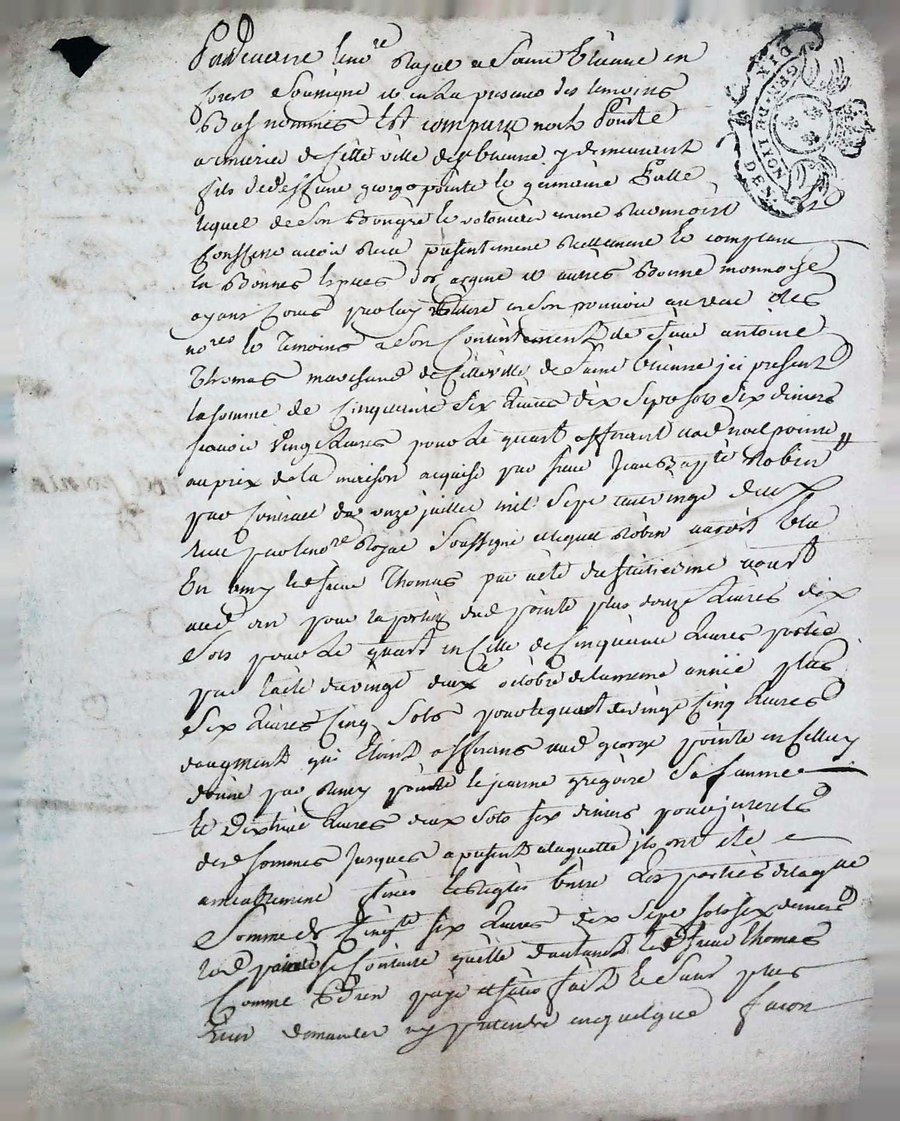 Pardevant le no.re Royal a Saint Etienne en
forest Soussigné et en la presence des temoins
Bas nommés Est comparu noel Pointe
armurier de Cette ville de St Etienne y demeurant
fils de deffunt george pointe le germaine Falle
lequel de Son Bongré le volontier a
Confesse avoir Receu presentement Reellement le comptant
En Bonnes Especes d'or argent et autres Bonne monnoye
ayant Cours par luy Retiré en Son pouvoir au veue des
no.res le temoins a Son Contentement de Sieur antoine
Thomas marchand de Cette ville de Saint Etienne jci present
la somme de Cinquante Six Livres dix Sept Sols Six deniers
scavoir Vingt Livres pour Le quart afferant aud noel pointe
au prix de la maison acquise par Sieur Jean Bap.te Robin
par Contrat du onze juillet mil Sept Cent vingt deux
Receu par le no.re Royal Soussigné auquel Robin auroit
Eu amy led Sieur Thomas par acte du Septiesme aoust
aud an pour la portion dud pointe plus douze Livres dix
Sols pour Le quart en Celle de Cinquante Livres portée
par l'acte du vingt deux octobre de la meme année plus
Six Livres Cinq Sols pour le quart de vingt Cinq Livres
daugment qui Etoint afferans aud george pointe en Celluy
donné par Remy pointe le jeanne gregoire Sa famme
le dixhuit Livres deux Sols Six deniers pour jnterets
desd Sommes jusques a present a laquelle jls ont été
amiablement Reglés Entre Les parties de laquelle
Somme de Cinq.te Six Livres dix Sept Sols Six deniers
led pointe Se Contente quitte d'autant led Sieur Thomas
Comme Bien payé et Satisfait le Sans plus
Rien demander ny pretendre en quelque facon
GEN.DE LYON
DIX DEN.